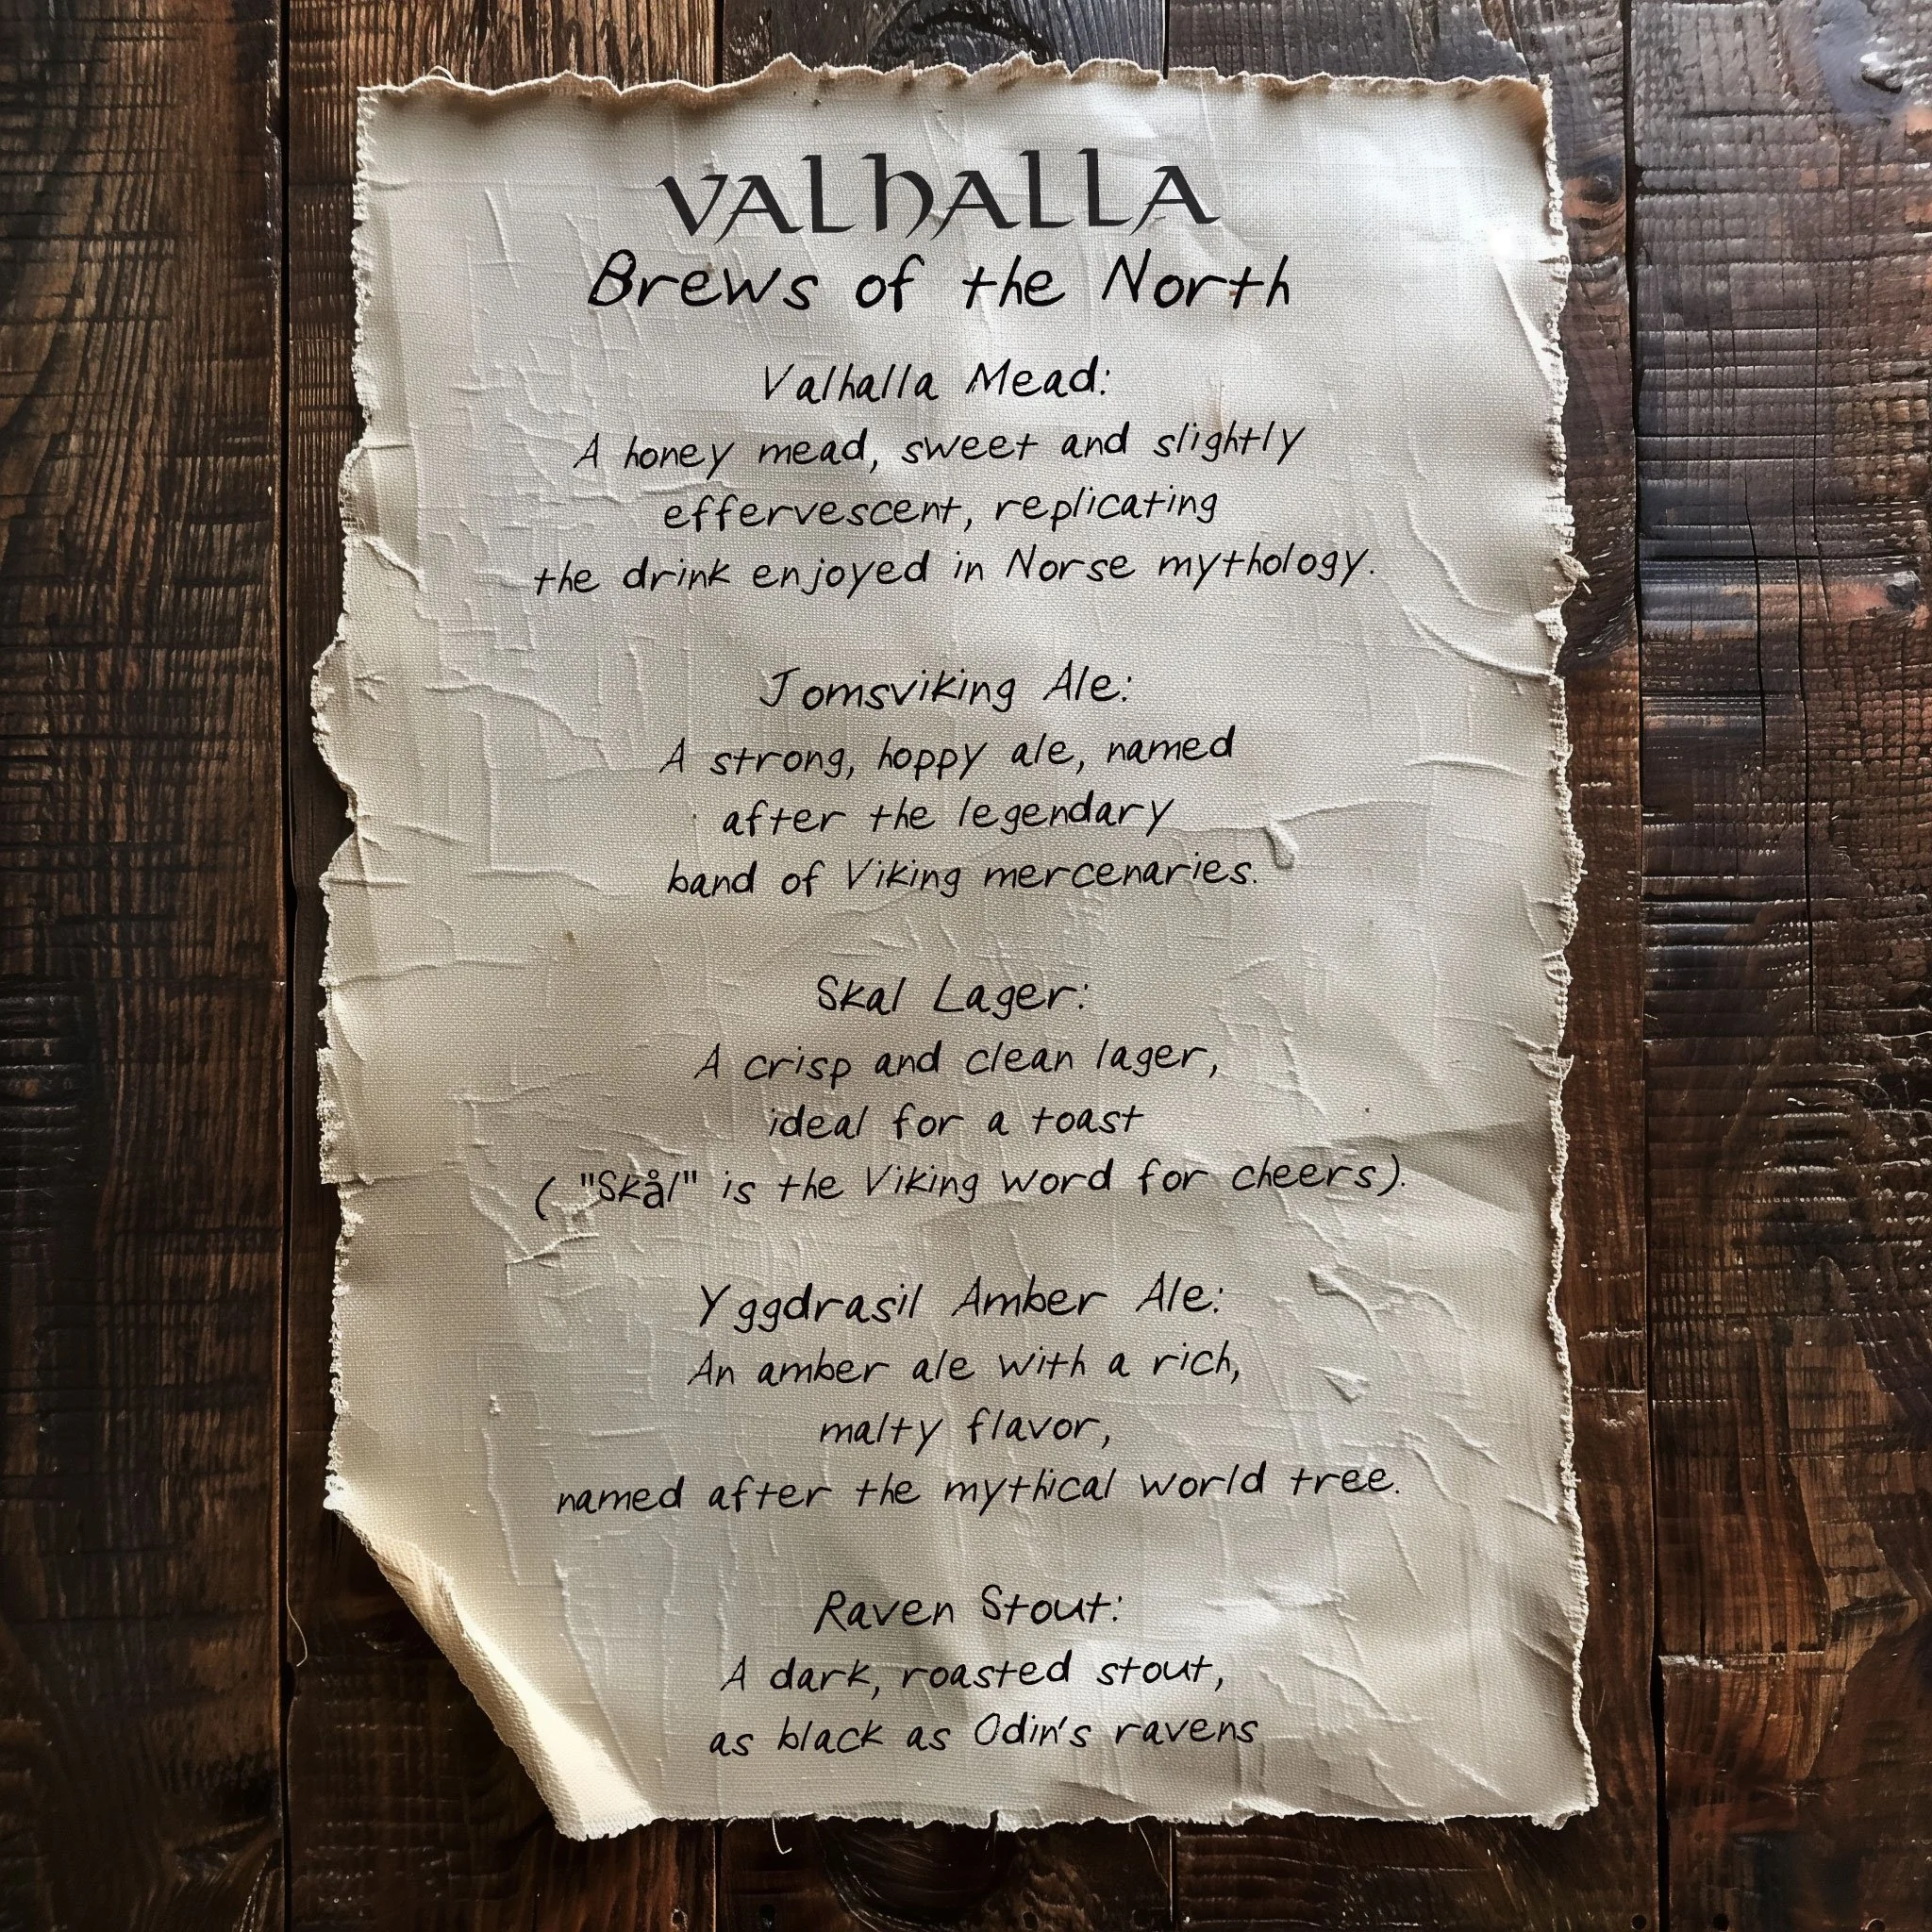 VALHALLA
Brews of the North
Valhalla Mead:
A honey mead, sweet and slightly
effervescent, replicating
the drink enjoyed in Norse mythology.
Jomsviking Ale:
A strong, hoppy ale, named
after the legendary
band of Viking mercenaries.
Skal Lager:
A crisp and clean lager,
ideal for a toast
( "Skål" is the Viking word for cheers).
Yggdrasil Amber Ale:
An amber ale with a rich,
malty flavor,
named after the mythical world tree.
Raven Stout:
A dark, roasted stout,
as black as Odin's ravens